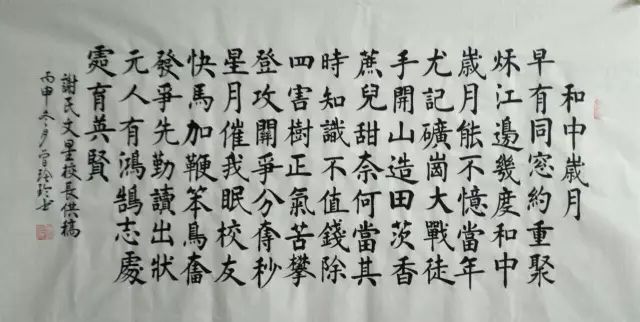 和中歲月
早有同窓約重聚
秌江邊幾度和中
歲月能不憶當年
尤記礦崗大戰徒
手開山造田茨香
蔗兒甜奈何當其
時知識不值錢除
四害樹正氣苦攀
登攻關爭分奪秒
星月催我眠校友
快馬加鞭笨鳥奮
發爭先勤讀出狀
元人有鴻鵠志處
處育英賢
謝民文星校長供稿
丙申冬月曾玲玲书